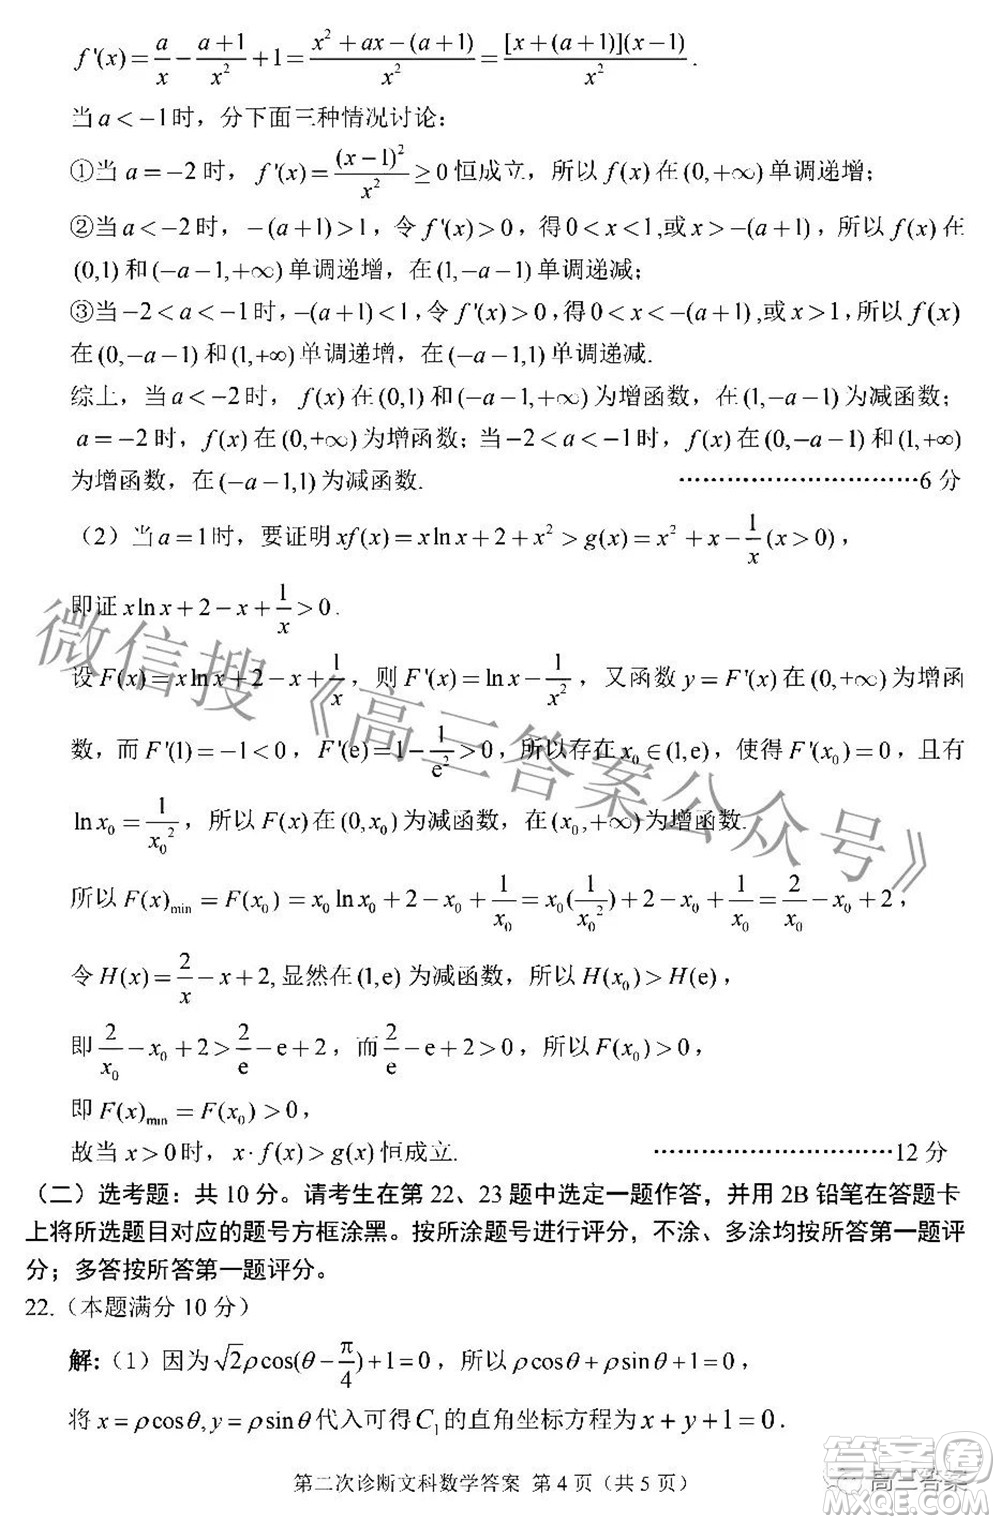 f'(x)=a/x-(a+1)/x²+1=(x²+ax-(a+1))/x²=([x+(a+1)](x-1))/x².
当a<-1时，分下面三种情况讨论：
①当a=-2时，f'(x)=(x-1)²/x²≥0恒成立，所以f(x)在(0,+∞)单调递增；
②当a<-2时，-(a+1)>1，令f'(x)>0，得0<x<1,或x>-(a+1)，所以f(x)在
(0,1)和(-a-1,+∞)单调递增，在(1,-a-1)单调递减；
③当-2<a<-1时,-(a+1)<1,令f'(x)>0，得0<x<-(a+1),或x>1，所以f(x)
在(0,-a-1)和(1,+∞)单调递增，在(-a-1,1)单调递减.
综上，当a<-2时，f(x)在(0,1)和(-a-1,+∞)为增函数，在(1,-a-1)为减函数；
a=-2时，f(x)在(0,+∞)为增函数；当-2<a<-1时，f(x)在(0,-a-1)和(1,+∞)
为增函数，在(-a-1,1)为减函数. ……………………………6分
（2）当a=1时，要证明xf(x)=xlnx+2+x²>g(x)=x²+x-1/x(x>0)，
即证xlnx+2-x+1/x>0.
设F(x)=xlnx+2-x+1/x，则F'(x)=lnx-1/x²，又函数y=F'(x)在(0,+∞)为增函
数，而F'(1)=-1<0，F'(e)=1-1/e²>0，所以存在x₀∈(1,e)，使得F'(x₀)=0，且有
lnx₀=1/x₀²，所以F(x)在(0,x₀)为减函数，在(x₀,+∞)为增函数.
所以F(x)min=F(x₀)=x₀lnx₀+2-x₀+1/x₀=x₀(1/x₀²)+2-x₀+1/x₀=2/x₀-x₀+2，
令H(x)=2/x-x+2,显然在(1,e)为减函数，所以H(x₀)>H(e)，
即2/x₀-x₀+2>2/e-e+2，而2/e-e+2>0，所以F(x₀)>0，
即F(x)min=F(x₀)>0，
故当x>0时，x·f(x)>g(x)恒成立. ……………………………12分
（二）选考题：共10分。请考生在第22、23题中选定一题作答，并用2B铅笔在答题卡
上将所选题目对应的题号方框涂黑。按所涂题号进行评分，不涂、多涂均按所答第一题评
分；多答按所答第一题评分。
22.（本题满分10分）
解:（1）因为√2ρcos(θ-π/4)+1=0，所以ρcosθ+ρsinθ+1=0，
将x=ρcosθ,y=ρsinθ代入可得C₁的直角坐标方程为x+y+1=0.
第二次诊断文科数学答案 第4页（共5页）
微信搜《高三答案公众号》
高三答案
答案圈
MXQE.COM